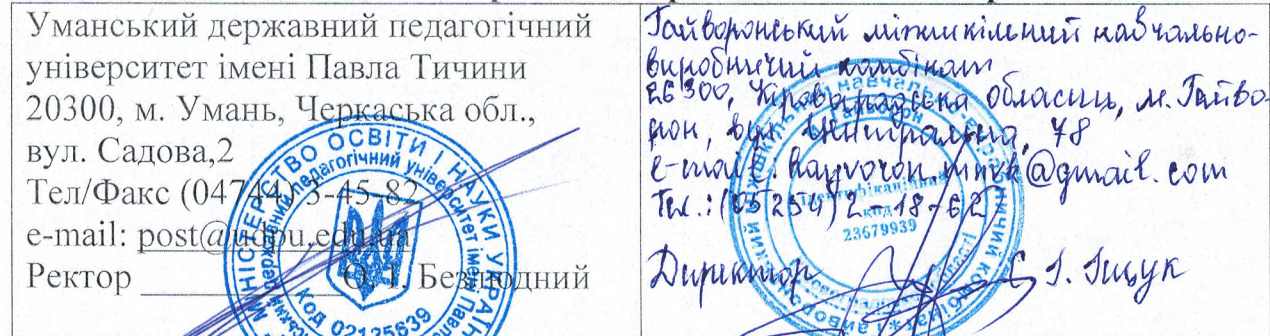 Уманський державний педагогічний
університет імені Павла Тичини
20300, м. Умань, Черкаська обл.,
вул. Садова,2
Тел/Факс (04744) 3-45-82
e-mail: post@udpu.edu.ua
Ректор ____________ О. І. Безлюдний
МІНІСТЕРСТВО ОСВІТИ І НАУКИ УКРАЇН
державний педагогічний університет імені Павл
Код 02125639
Гайворонський міжшкільний навчально-
виробничий комбінат
26300, Кіровоградська область, м. Гайво-
рон, вул. Центральна, 78
e-mail: hayvoron.mnvk@gmail.com
Тел.: (05254) 2-18-62
Директор Г. Іщук
Ідентифікаційний
код
23679939